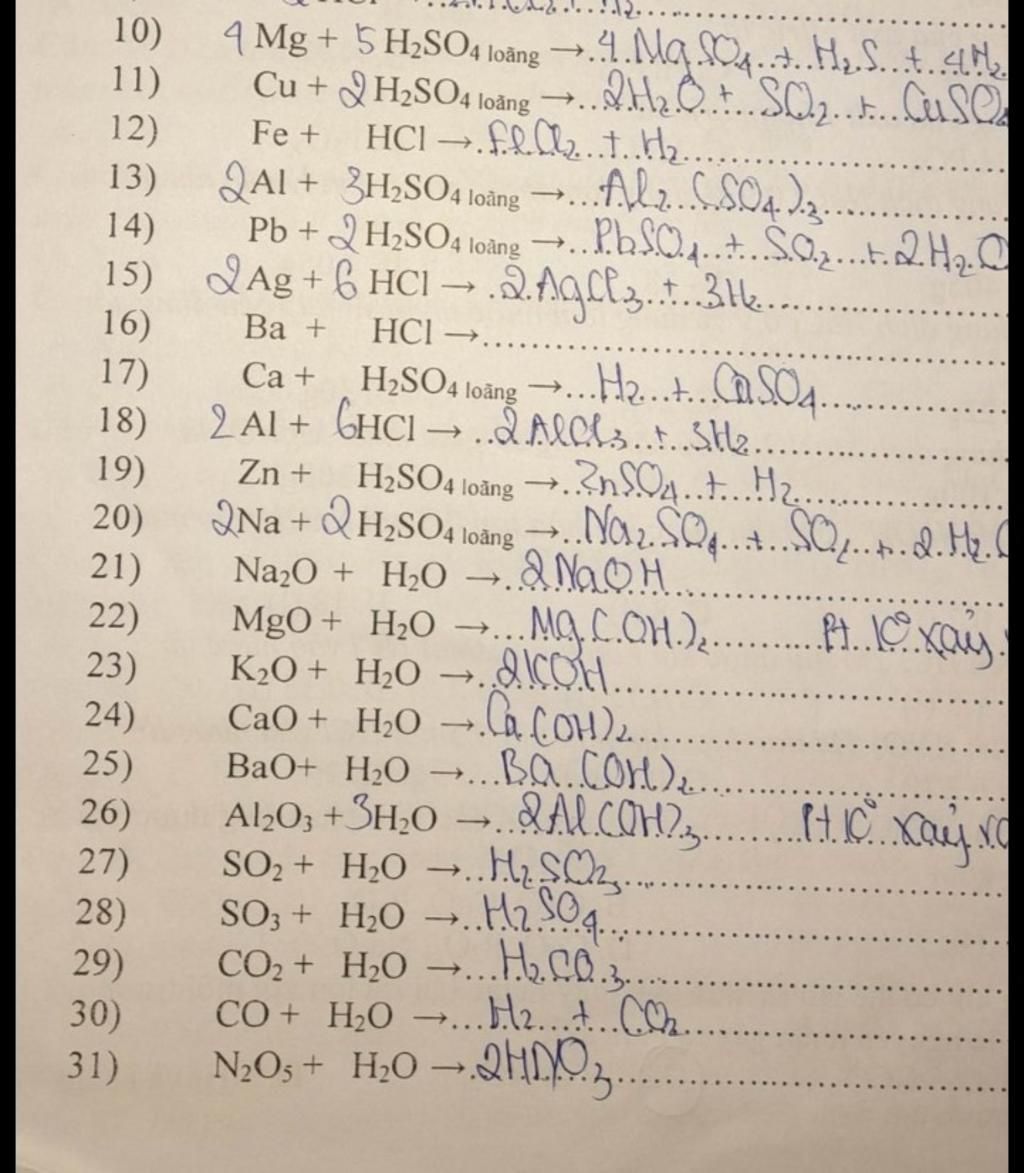 10) 4 Mg + 5 H2SO4 loãng → 4 MgSO4 + H2S + 4H2
11) Cu + 2 H2SO4 loãng → 2H2O + SO2 + CuSO4
12) Fe + HCl → FeCl2 + H2
13) 2Al + 3H2SO4 loãng → Al2(SO4)3
14) Pb + 2 H2SO4 loãng → PbSO4 + SO2 + 2H2O
15) 2Ag + 6 HCl → 2AgCl3 + 3H2
16) Ba + HCl →
17) Ca + H2SO4 loãng → H2 + CaSO4
18) 2 Al + 6HCl → 2AlCl3 + 3H2
19) Zn + H2SO4 loãng → ZnSO4 + H2
20) 2Na + 2 H2SO4 loãng → Na2SO4 + SO2 + 2 H2O
21) Na2O + H2O → 2NaOH
22) MgO + H2O → Mg(OH)2 Pt 10 xảy
23) K2O + H2O → 2KOH
24) CaO + H2O → Ca(OH)2
25) BaO+ H2O → Ba(OH)2
26) Al2O3 +3H2O → 2Al(OH)3 Pt 10 xảy ra
27) SO2 + H2O → H2SO3
28) SO3 + H2O → H2SO4
29) CO2 + H2O → H2CO3
30) CO + H2O → H2 + CO2
31) N2O5 + H2O → 2HNO3